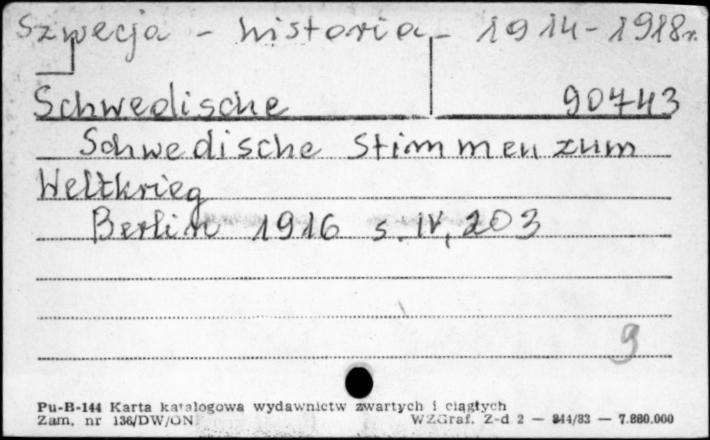 Szwecja - historia - 1914-1918r.
Schwedische 90743
Schwedische Stimmen zum
Weltkrieg
Berlin 1916 s. IV, 203
9
Pu-B-144 Karta katalogowa wydawnictw zwartych i ciągłych
Zam. nr 136/DW/ON WZGraf. Z-d 2 — 244/83 — 7.880.000